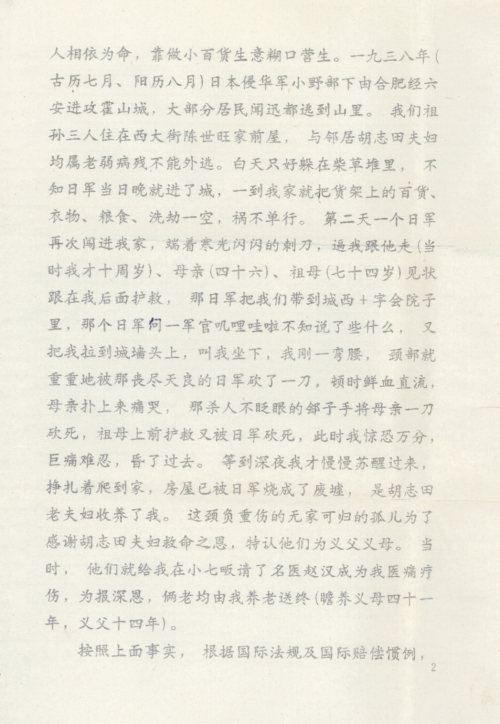 人相依为命，靠做小百货生意糊口营生。一九三八年(
古历七月、阳历八月)日本侵华军小野部下由合肥经六
安进攻霍山城，大部分居民闻迅都逃到山里。 我们祖
孙三人住在西大街陈世旺家前屋， 与邻居胡志田夫妇
均属老弱病残不能外逃。白天只好躲在柴草堆里， 不
知日军当日晚就进了城，一到我家就把货架上的百货、
衣物、粮食、洗劫一空，祸不单行。 第二天一个日军
再次闯进我家，端着寒光闪闪的刺刀，逼我跟他走(当
时我才十周岁)、母亲(四十六)、祖母(七十四岁)见状
跟在我后面护救， 那日军把我们带到城西十字会院子
里，那个日军向一军官叽哩哇啦不知说了些什么， 又
把我拉到城墙头上，叫我坐下，我刚一弯腰， 颈部就
重重地被那丧尽天良的日军砍了一刀，顿时鲜血直流，
母亲扑上来痛哭， 那杀人不眨眼的郐子手将母亲一刀
砍死，祖母上前护救又被日军砍死，此时我惊恐万分，
巨痛难忍，昏了过去。 等到深夜我才慢慢苏醒过来，
挣扎着爬到家，房屋已被日军烧成了废墟， 是胡志田
老夫妇收养了我。 这颈负重伤的无家可归的孤儿为了
感谢胡志田夫妇救命之恩，特认他们为义父义母。 当
时， 他们就给我在小七畈请了名医赵汉成为我医痛疗
伤，为报深恩，俩老均由我养老送终(瞻养义母四十一
年，义父十四年)。
按照上面事实， 根据国际法规及国际赔偿惯例，
2